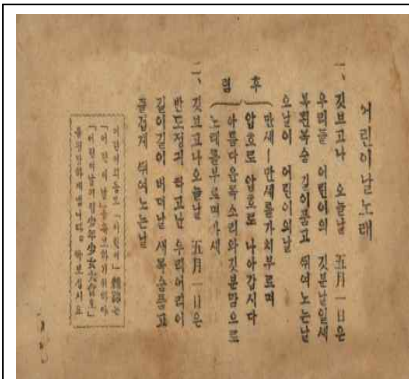 어린이날노래
一、깃브고나 오늘날 五月一日은
우리들 어린이의 깃분날일세
복된목숨 길이품고 뛰여노는날
오날이 어린이의날
후렴
만세―만세를가치부르며
압흐로 압흐로 나아갑시다
아름다운목소리와깃분맘으로
노래를부르며가세
二、깃브고나오늘날 五月一日은
반도정긔 타고난 우리어린이
길이길이 버더날 새목숨품고
즐겁게 뛰여노는날
어린이의동모「어린이」雜誌는